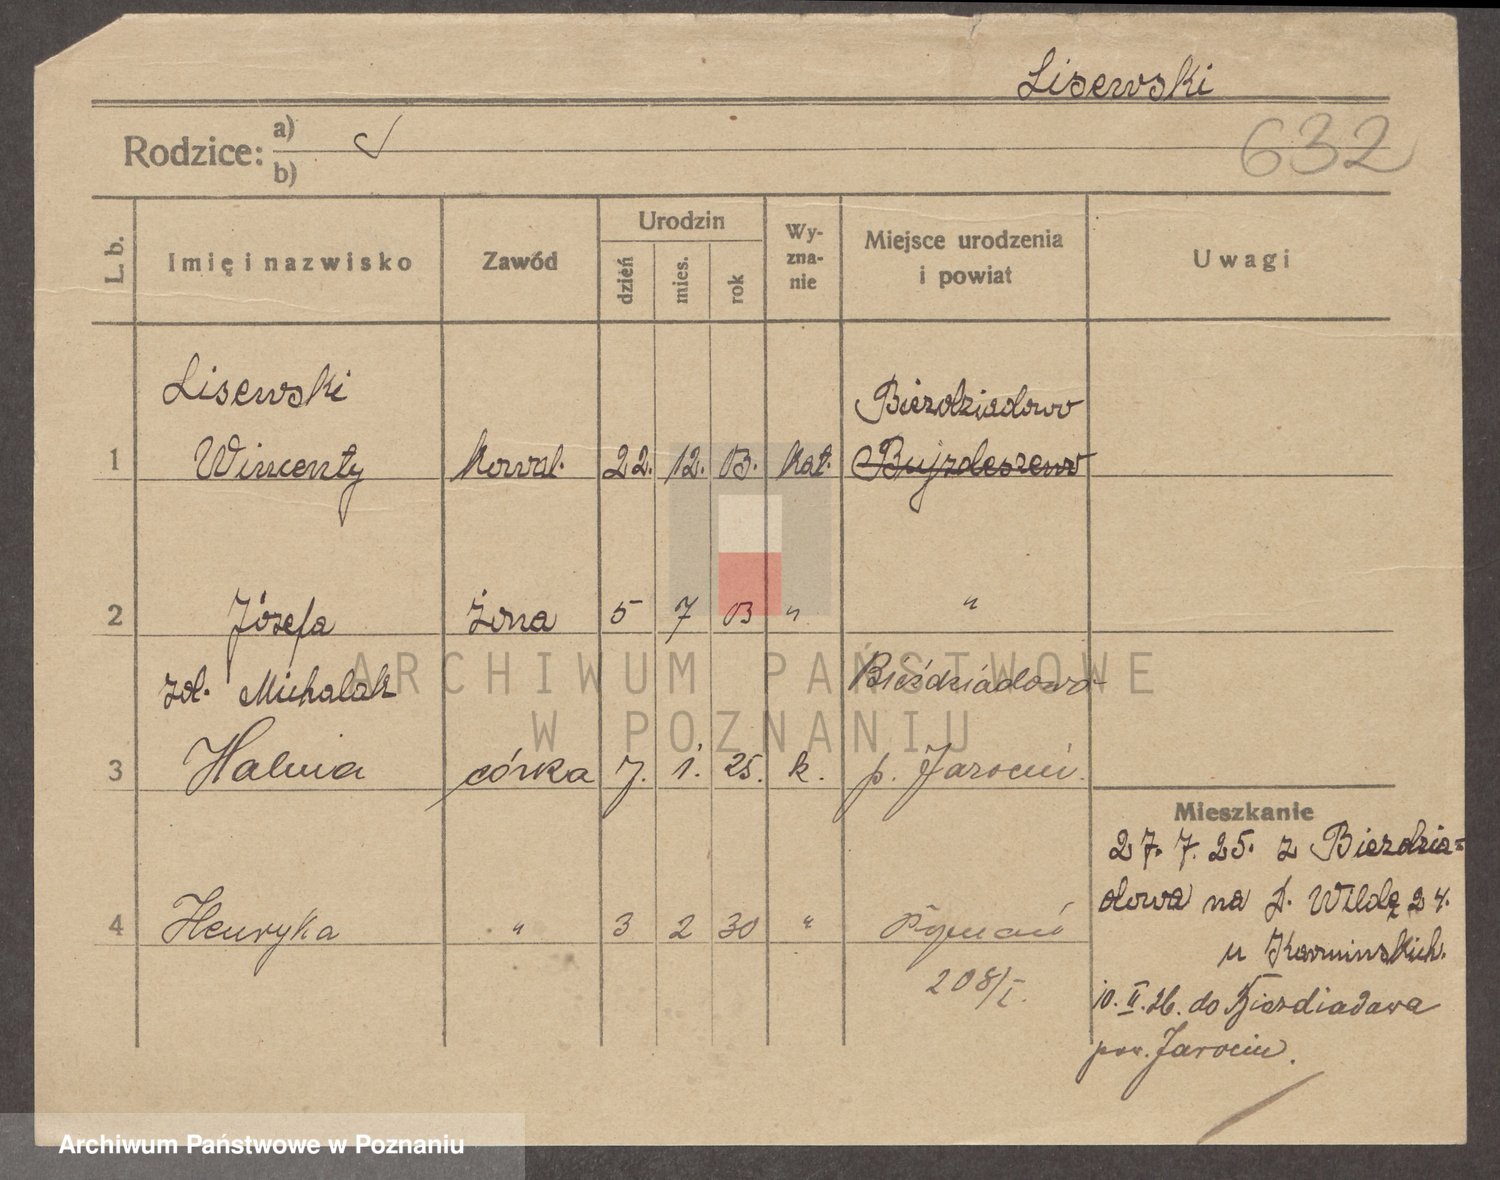 Lisewski
632
Rodzice: a)
b)
L. b.
Imię i nazwisko
Zawód
Urodzin
dzień
mies.
rok
Wy-
zna-
nie
Miejsce urodzenia
i powiat
Uwagi
Lisewski
Bierdziadowo
1 Wincenty kowal. 22. 12. 03. kat.
2 Józefa żona 5 7 03 " "
zd. Michalak
Bieździadowo
3 Halina córka 7. 1. 25. k. p. Jarocin.
4 Henryka " 3 2 30 " Poznań
208/I.
Mieszkanie
27. 7. 25. z Bierdzia=
dowa na D. Wildę 24.
u Karmińskich.
10. II. 26. do Bierdziadowa
pow. Jarocin.
ARCHIWUM PAŃSTWOWE
W POZNANIU
Archiwum Państwowe w Poznaniu